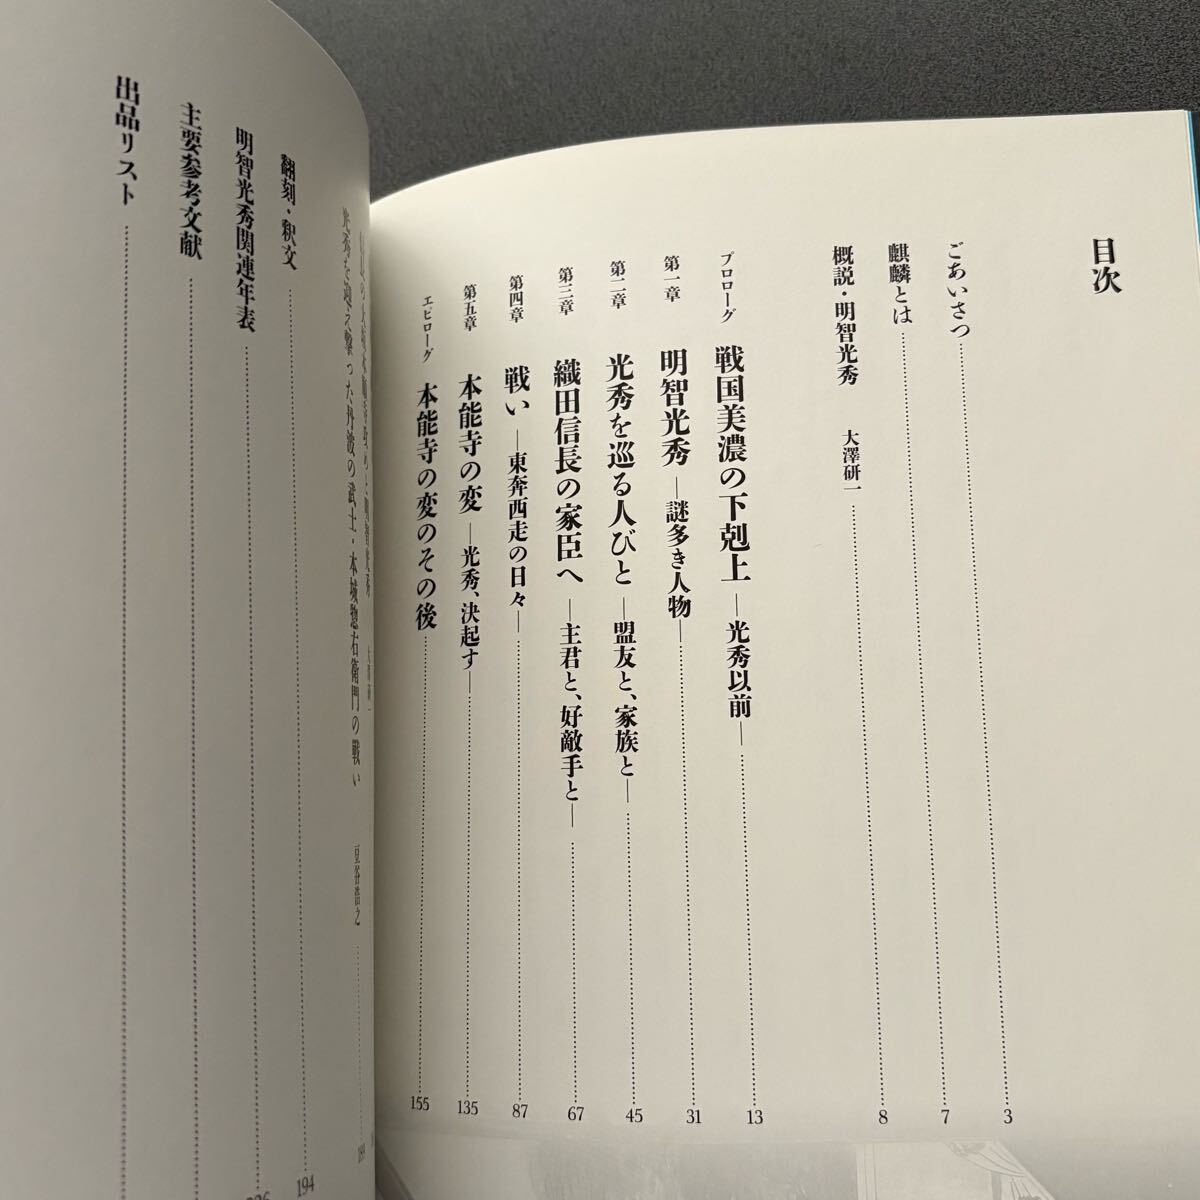 目次
ごあいさつ 3
麒麟とは 7
概説・明智光秀 大澤研一 8
プロローグ 戦国美濃の下剋上 ―光秀以前― 13
第一章 明智光秀 ―謎多き人物― 31
第二章 光秀を巡る人びと ―盟友と、家族と― 45
第三章 織田信長の家臣へ ―主君と、好敵手と― 67
第四章 戦い ―東奔西走の日々― 87
第五章 本能寺の変 ―光秀、決起す― 135
エピローグ 本能寺の変のその後 155
光秀を迎え撃った丹波の武士・本城惣右衛門の戦い 豆谷浩之 189
翻刻・釈文 194
明智光秀関連年表
主要参考文献
出品リスト